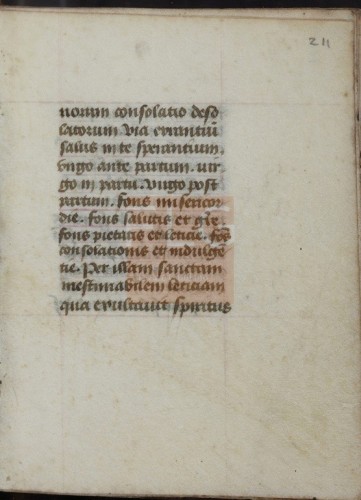 211
norum consolatio deso
latorum. via errantiũ
salus in te sperantium.
virgo ante partum. vir
go in partu. virgo post
partum. fons misericor
die. fons salutis et gr̃e.
fons pietatis et leticie. fõs
consolationis et indulgẽ
tie. Per illam sanctam
inestimabilem leticiam
qua exultauit spiritus